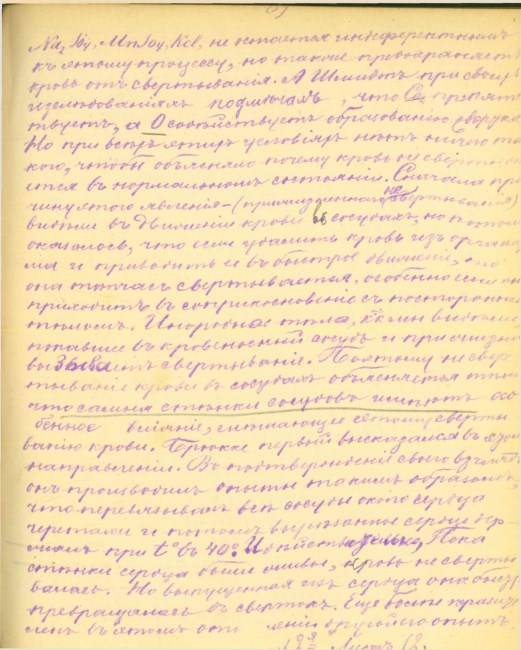 Na₂SO₄, MnSO₄, KCl, не остается индеферентнымъ
къ этому процессу, но также предохраняетъ
кровь отъ свертыванія. А Шмидтъ при своихъ
изслѣдованіяхъ подмѣтилъ, что CO₂ препят
ствуетъ, а O содѣйствуетъ образованію сверт
Но при всѣхъ этихъ условіяхъ нѣтъ ничего та
кого, чтобы объясняло почему кровь не сверты
ется въ нормальномъ состояніи. Сначала при
чину этого явленія – (не свертыванія)
видѣли въ движеніи крови въ сосудахъ, но потомъ
оказалось, что если удалить кровь изъ организ
ма и приводить ее въ быстрое движеніе, то
она тотчасъ свертывается, особенно если она
приходитъ въ соприкосновеніе съ постороннимъ
тѣломъ. Инородныя тѣла, какъ мы видѣли
попавшіе въ кровеносный сосудъ и при жизни
вызываютъ свертываніе. Поэтому не свер
тываніе крови въ сосудахъ объясняется тѣмъ
что самыя стѣнки сосудовъ имѣютъ осо
бенное вліяніе, мѣшающее этому сверты
ванію крови. Брюкке первый высказался въ этомъ
направленіи. Въ подтвержденіе своего взгляда
онъ производилъ опыты такимъ образомъ,
что перевязывалъ всѣ сосуды около сердца
черепахи и потомъ вырѣзанное сердце дер
жалъ при t° въ 40°. И дѣйствительно, Пока
стѣнки сердца были живы, кровь не сверты
валась. Но выпущенная изъ сердца она быстро
превращалась въ свертокъ. Еще болѣе
ленъ въ этомъ отношеніи другой опытъ.
Листъ 12.